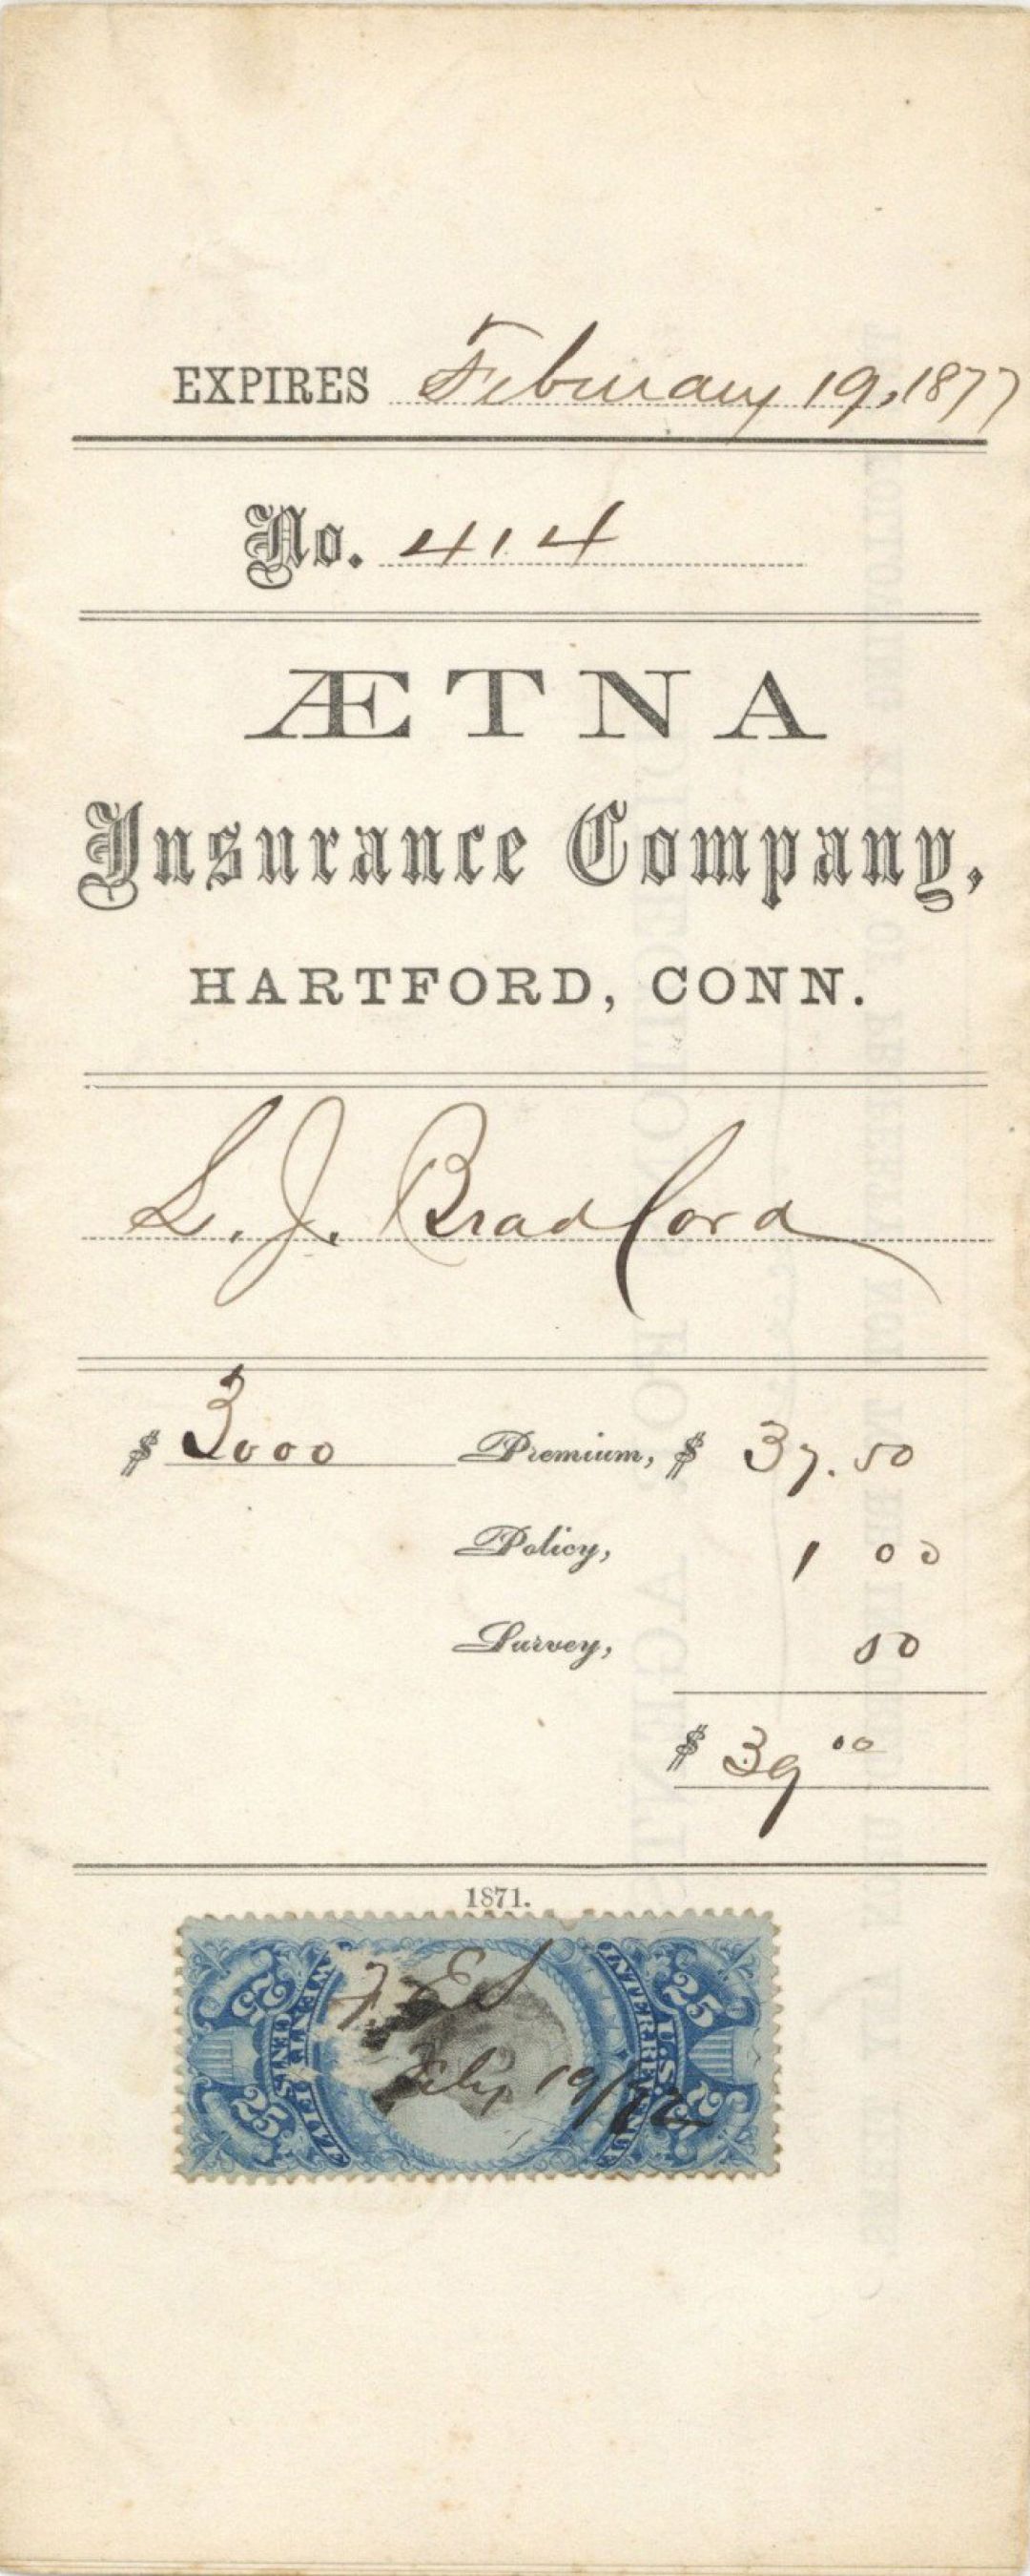 EXPIRES February 19, 1877
No. 414
ÆTNA
Insurance Company,
HARTFORD, CONN.
S. J. Bradford
$ 3000 Premium, $ 37.50
Policy, 1 00
Survey, 50
$ 39 00
1871.
25 TWENTY FIVE CENTS 25
25 U.S. INTER. REVENUE 25
F. E. S
Feby 19/72